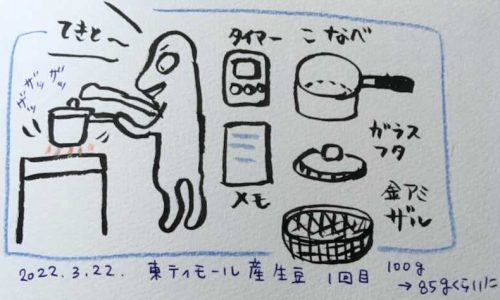 てきと〜
ザッ ザッ ザッ
タイマー
こなべ
メモ
ガラス
フタ
金アミ
ザル
2022.3.22. 東ティモール産生豆 1回目 100g
→85gくらいに